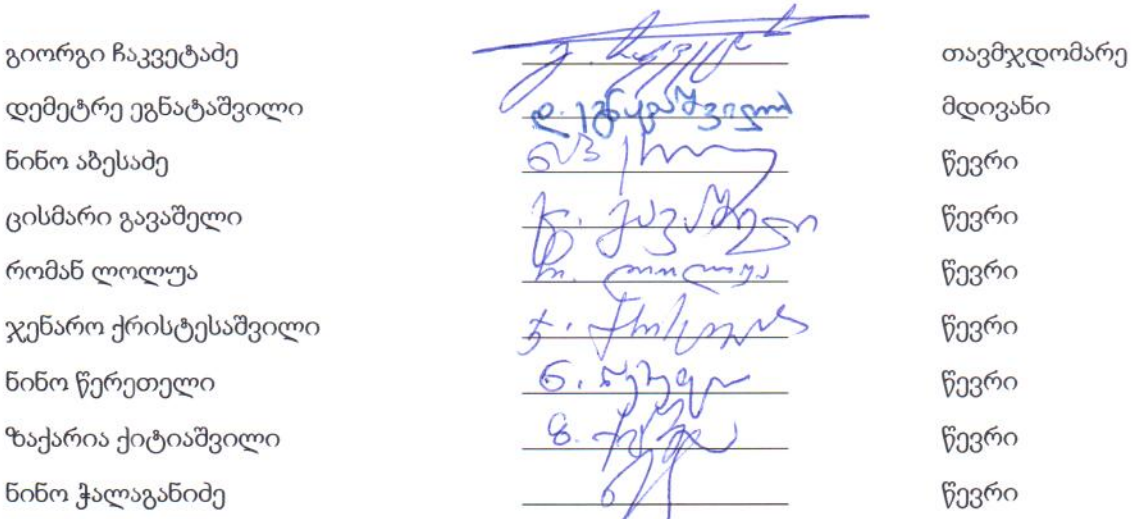 გიორგი ჩაკვეტაძე თავმჯდომარე
დემეტრე ეგნატაშვილი დ. ეგნატაშვილი მდივანი
ნინო აბესაძე წევრი
ცისმარი გავაშელი წევრი
რომან ლოლუა რ. ლოლუა წევრი
ჯენარო ქრისტესაშვილი წევრი
ნინო წერეთელი წევრი
ზაქარია ქიტიაშვილი წევრი
ნინო ჭალაგანიძე წევრი